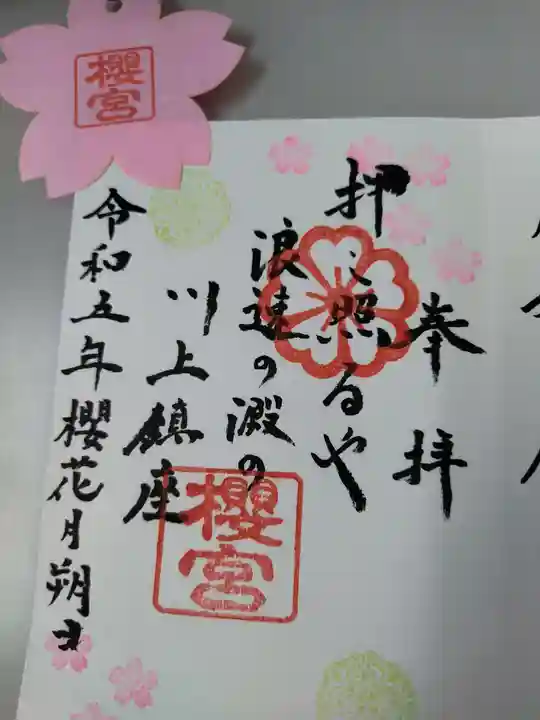 奉拝
押し照るや
浪速の澱の
川上鎮座
令和五年櫻花月朔
櫻宮
櫻宮